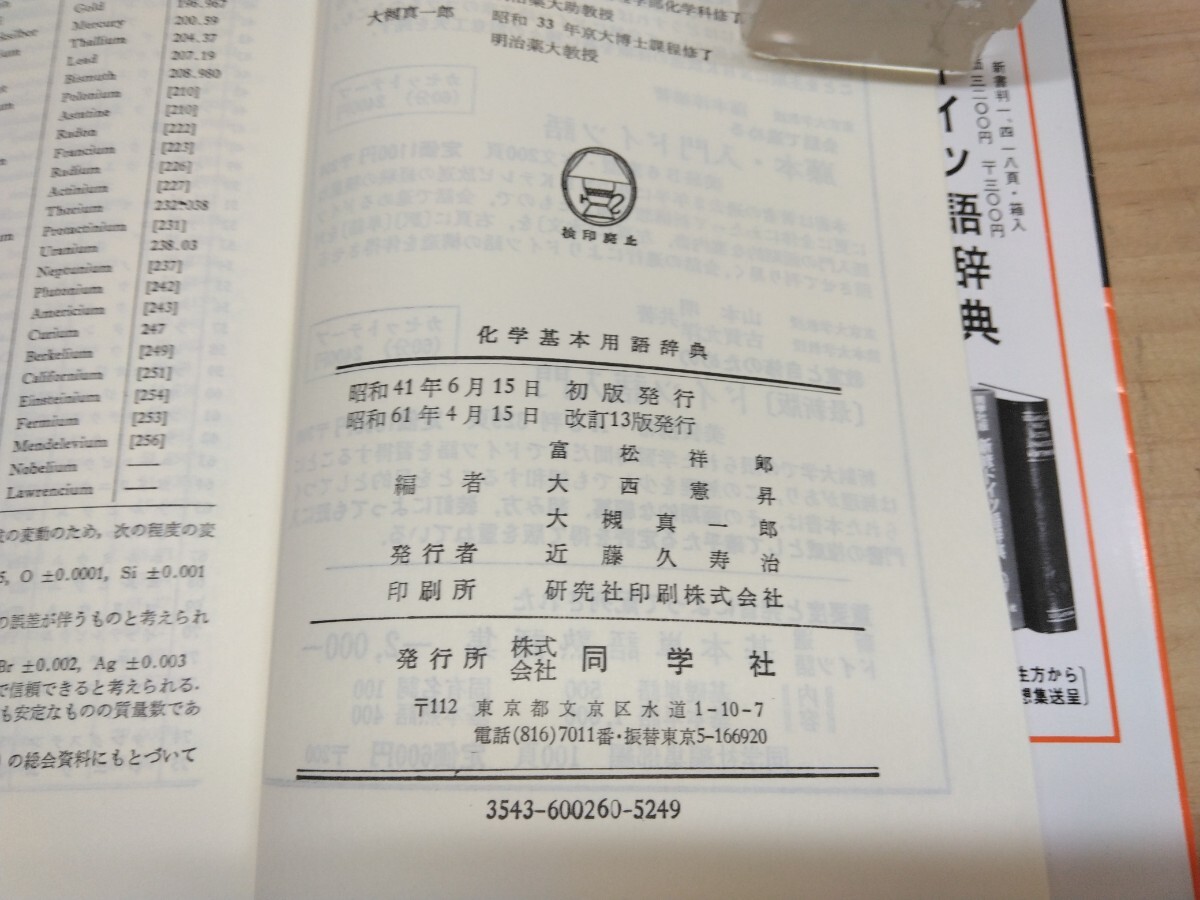 Gold 196.967
Mercury 200.59
Thallium 204.37
Lead 207.19
Bismuth 208.980
Polonium [210]
Astatine [210]
Radon [222]
Francium [223]
Radium [226]
Actinium [227]
Thorium 232.038
Protactinium [231]
Uranium 238.03
Neptunium [237]
Plutonium [242]
Americium [243]
Curium 247
Berkelium [249]
Californium [251]
Einsteinium [254]
Fermium [253]
Mendelevium [256]
Nobelium —
Lawrencium —
の変動のため，次の程度の変
O ±0.0001, Si ±0.001
の誤差が伴うものと考えられ
Br ±0.002, Ag ±0.003
で信頼できると考えられる.
も安定なものの質量数であ
の総会資料にもとづいて
大槻真一郎 昭和33年京大博士課程修了
明治薬大教授
検印廃止
化学基本用語辞典
昭和41年6月15日 初版発行
昭和61年4月15日 改訂13版発行
編者 富松祥郎
大西憲昇
大槻真一郎
発行者 近藤久寿治
印刷所 研究社印刷株式会社
発行所 株式会社 同学社
〒112 東京都文京区水道1-10-7
電話(816)7011番・振替東京5-166920
3543-600260-5249
新書判一、四一八頁・箱入
三二〇〇円 〒三〇〇円
イツ語辞典
生方から
想集送呈